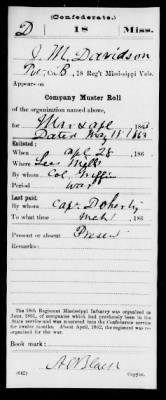 (Confederate.)
D 18 Miss.
J. M. Davidson
Pvt, Co. B, 18 Reg't Mississippi Vols.
Appears on
Company Muster Roll
of the organization named above,
for Mar & Apl 186
Dated May 18 1863
Enlisted:
When Apl 28, 186
Where Lees Mill
By whom Col. Griffin
Period War
Last paid:
By whom Capt. Doherty
To what time 186
Present or absent Present
Remarks:
The 18th Regiment Mississippi Infantry was organized in
June, 1861, of companies which had previously been in the
State service and was mustered into the Confederate service
for twelve months. About April, 1862, the regiment was re-
organized for the war.
(642) Copyist.